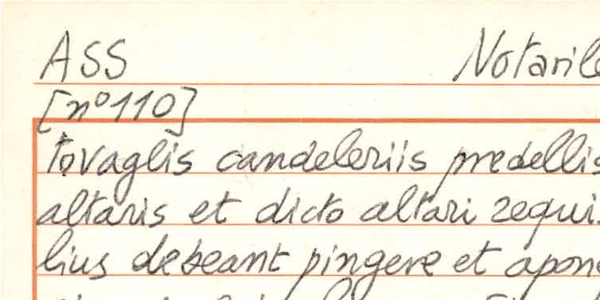 ASS Notarile
[nº110]
tovaglis candeleriis predellis
altaris et dicto altari requi
lius debeant pingere et apone